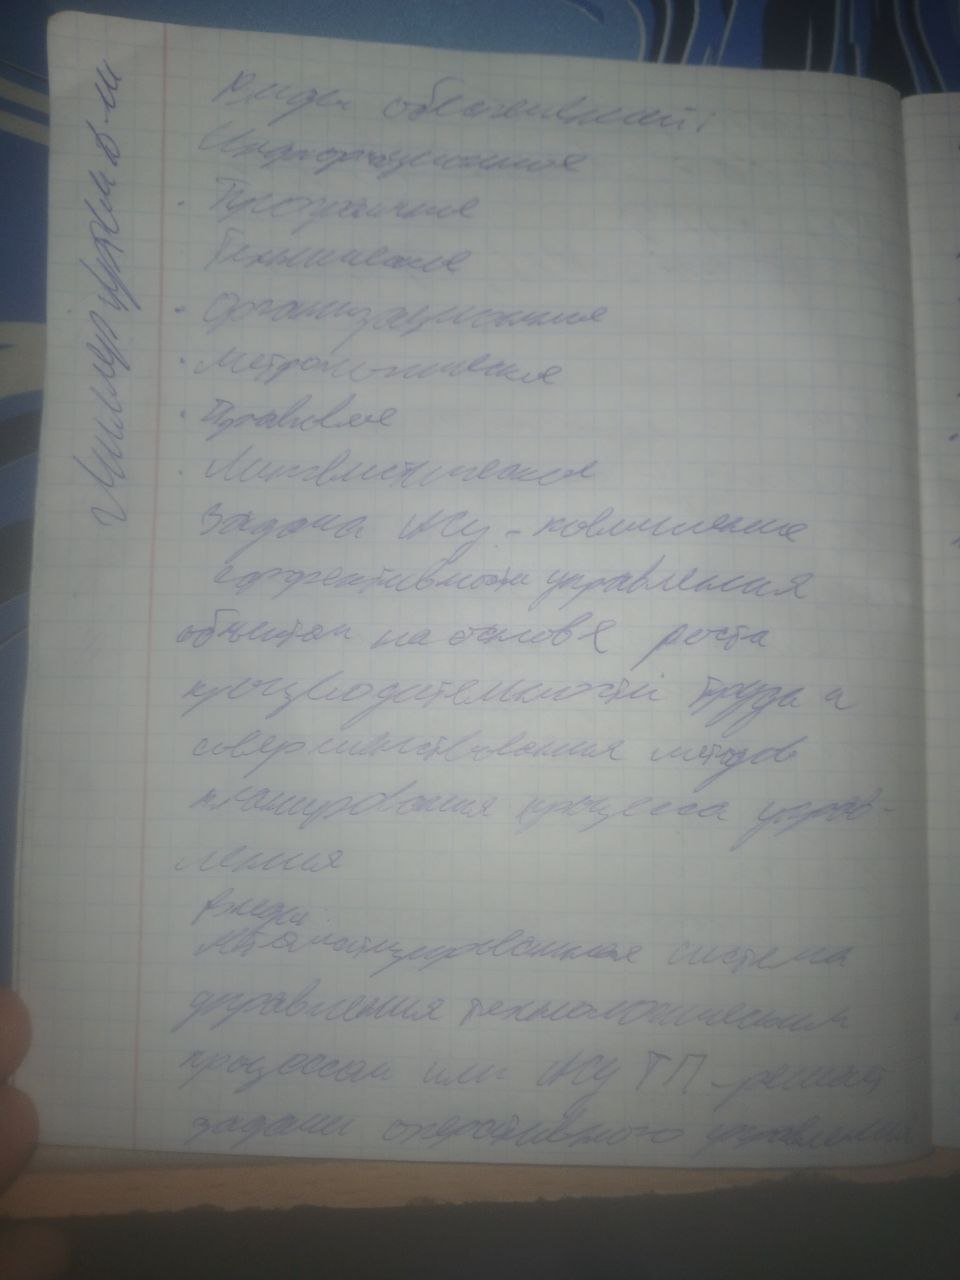 Виды обеспечений:
Информационное
· Програмное
Техническое
· Организационное
· Метрологическое
· Правовое
· Лингвистическое
Задача АСУ - повышение
эффективности управления
объектом на основе роста
производительности труда и
совершенствования методов
планирования процесса управ-
ления
Виды:
Автоматизированная система
управления технологическим
процессом или АСУ ТП - решает
задачи оперативного управления